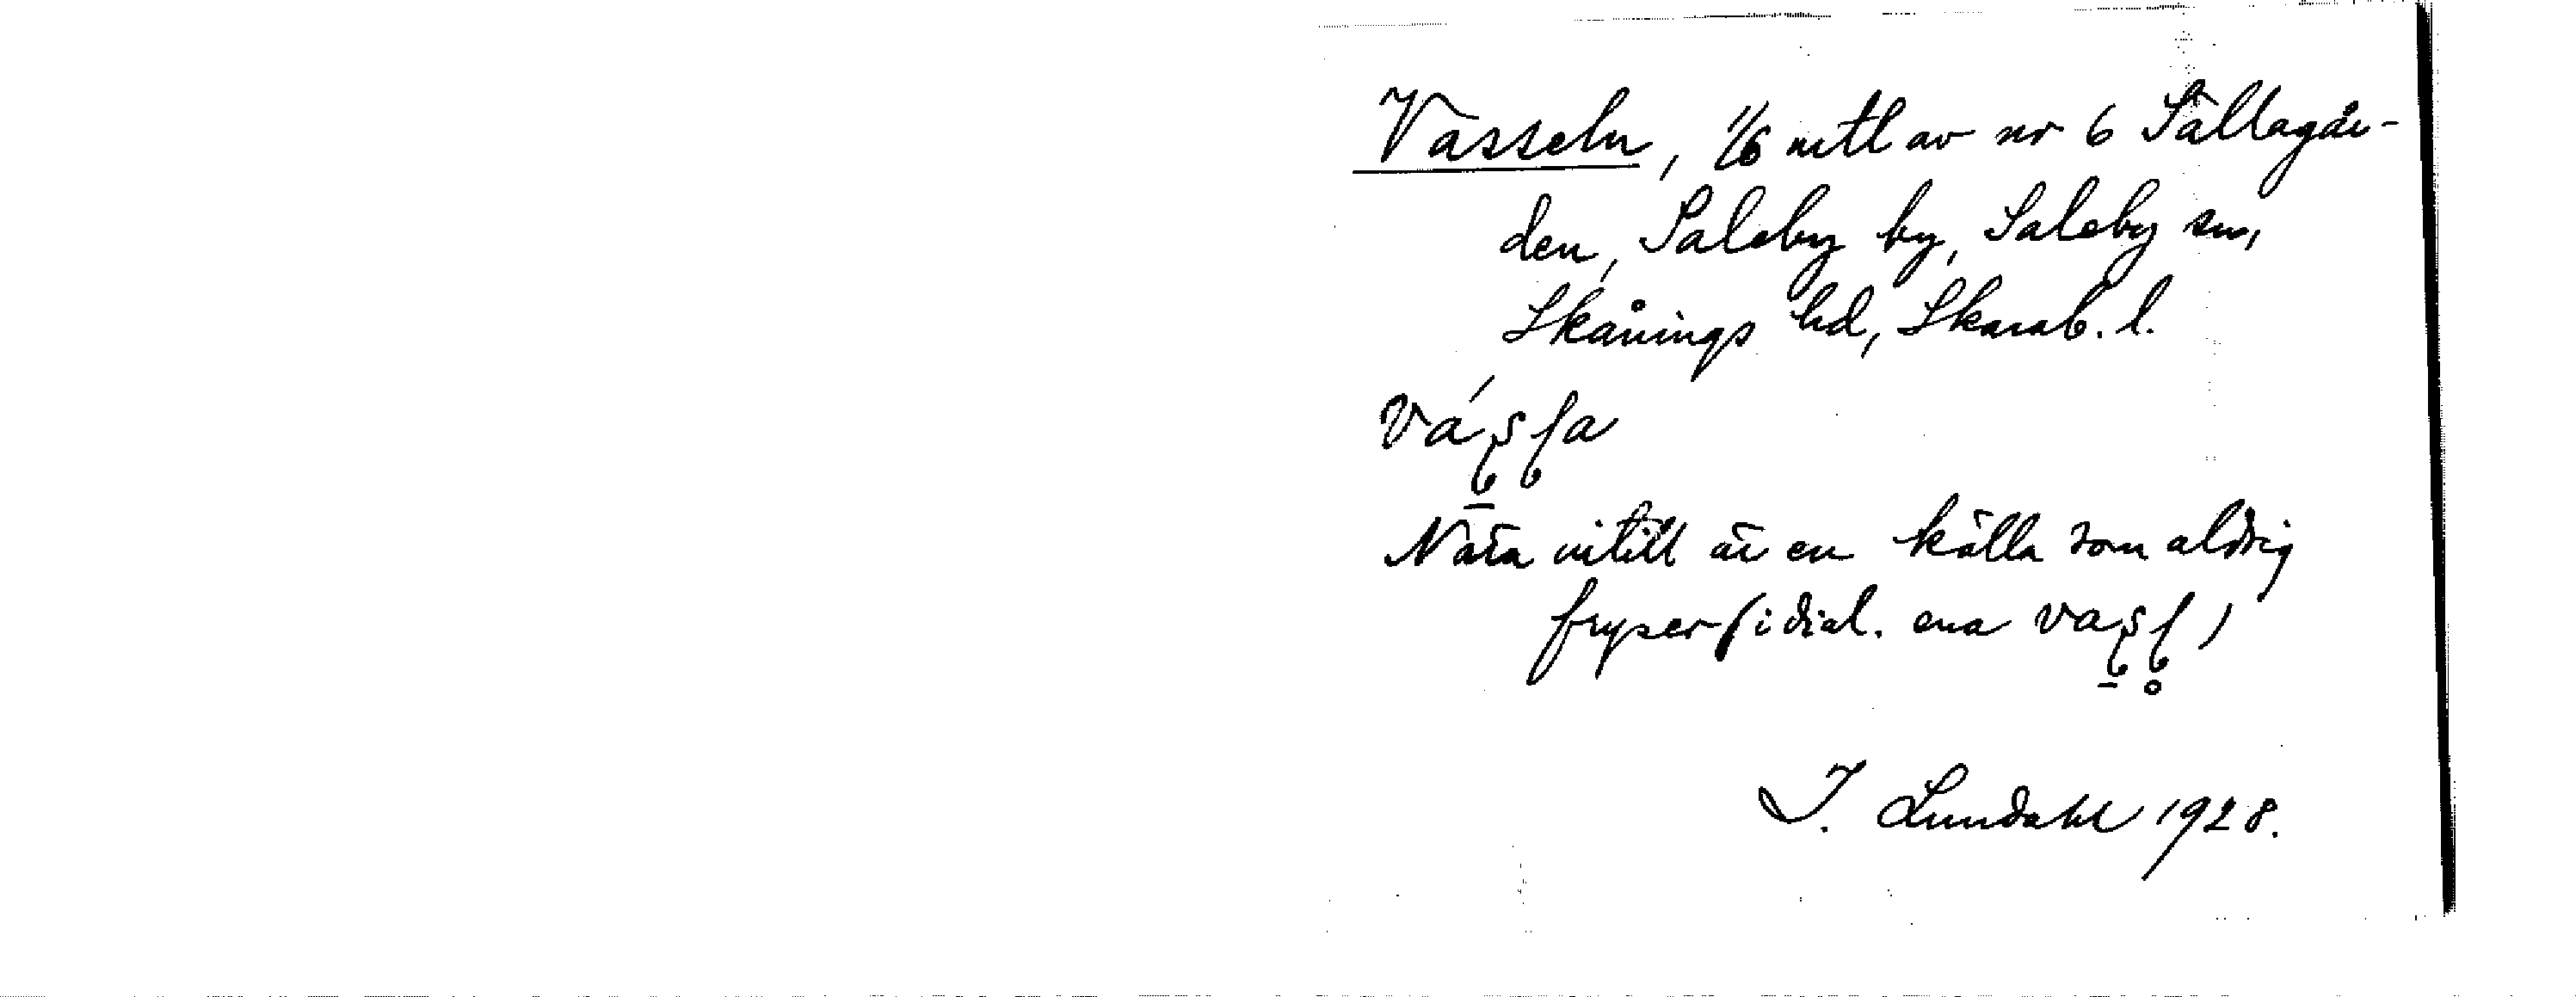 Vasseln, 1/6 mtl av nr 6 Sällagår-
den, Saleby by, Saleby sn,
Skånings hd, Skarab. l.
Nära intill är en källa som aldrig
fryser (i dial. ena
I. Lundahl 1928.